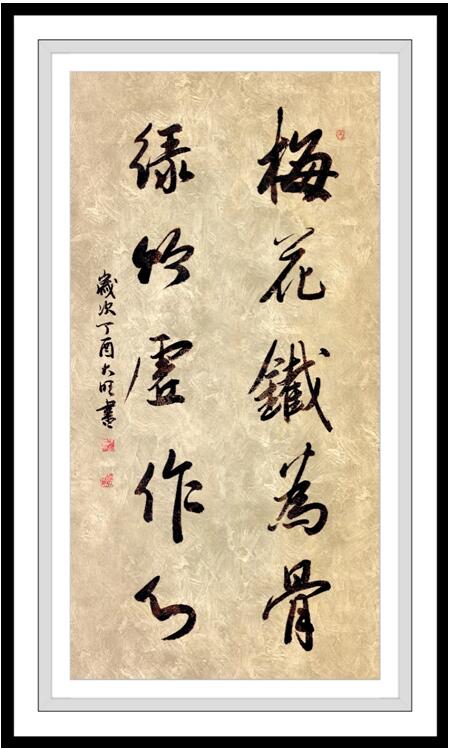 梅花鐵為骨
綠竹虛作心
歲次丁酉大旺書